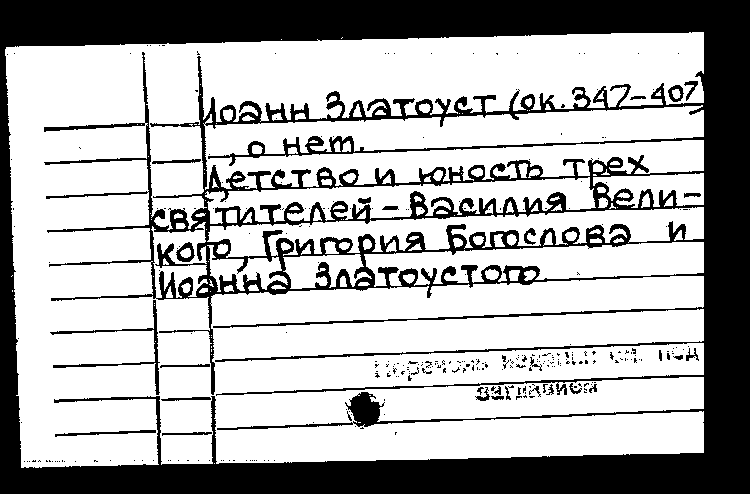 Иоанн Златоуст (ок. 347-407)
, о нем.
Детство и юность трех
святителей - Василия Вели-
кого, Григория Богослова и
Иоанна Златоустого
Перечень изданий см. под
заглавием